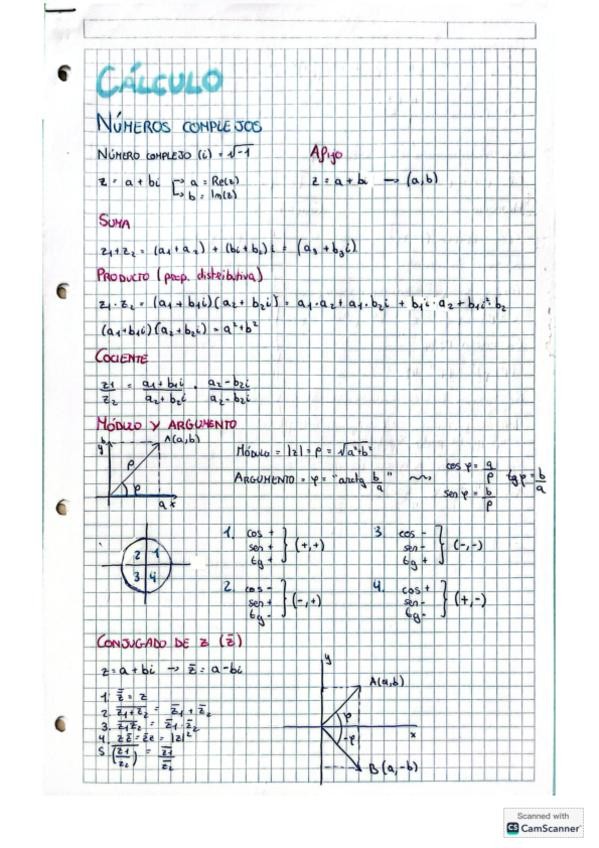 CÁLCULO
NÚMEROS COMPLEJOS
NÚMERO COMPLEJO (i) = √-1
z = a + bi → a = Re(z)
→ b = Im(z)
Afijo
z = a + bi → (a,b)
SUMA
z1+z2 = (a1+a2) + (b1+b2)i = (a3+b3i)
PRODUCTO (prop. distributiva)
z1·z2 = (a1+b1i)(a2+b2i) = a1·a2 + a1·b2i + b1i·a2 + b1i²·b2
(a1+b1i)(a2+b2i) = a²+b²
COCIENTE
z1/z2 = a1+b1i/a2+b2i · a2-b2i/a2-b2i
MÓDULO Y ARGUMENTO
b
y
A(a,b)
ρ
φ
a x
MÓDULO = |z| = ρ = √a²+b²
ARGUMENTO = φ = "arctg b/a"
cos φ = a/ρ
sen φ = b/ρ
tg φ = b/a
2 1
3 4
1. cos +
sen + (+,+)
tg +
3 cos -
sen - (-,-)
tg +
2. cos -
sen + (-,+)
tg -
4. cos +
sen - (+,-)
tg -
CONJUGADO DE z (z̄)
z = a + bi → z̄ = a - bi
1. z̿ = z
2. z̅1̅+̅z̅2̅ = z̄1 + z̄2
3. z̅1̅z̅2̅ = z̄1·z̄2
4. zz̄ = z̄z = |z|²
5. (z1/z2) = z̄1/z̄2
y
A(a,b)
φ
x
-φ
B(a,-b)
Scanned with
CS CamScanner